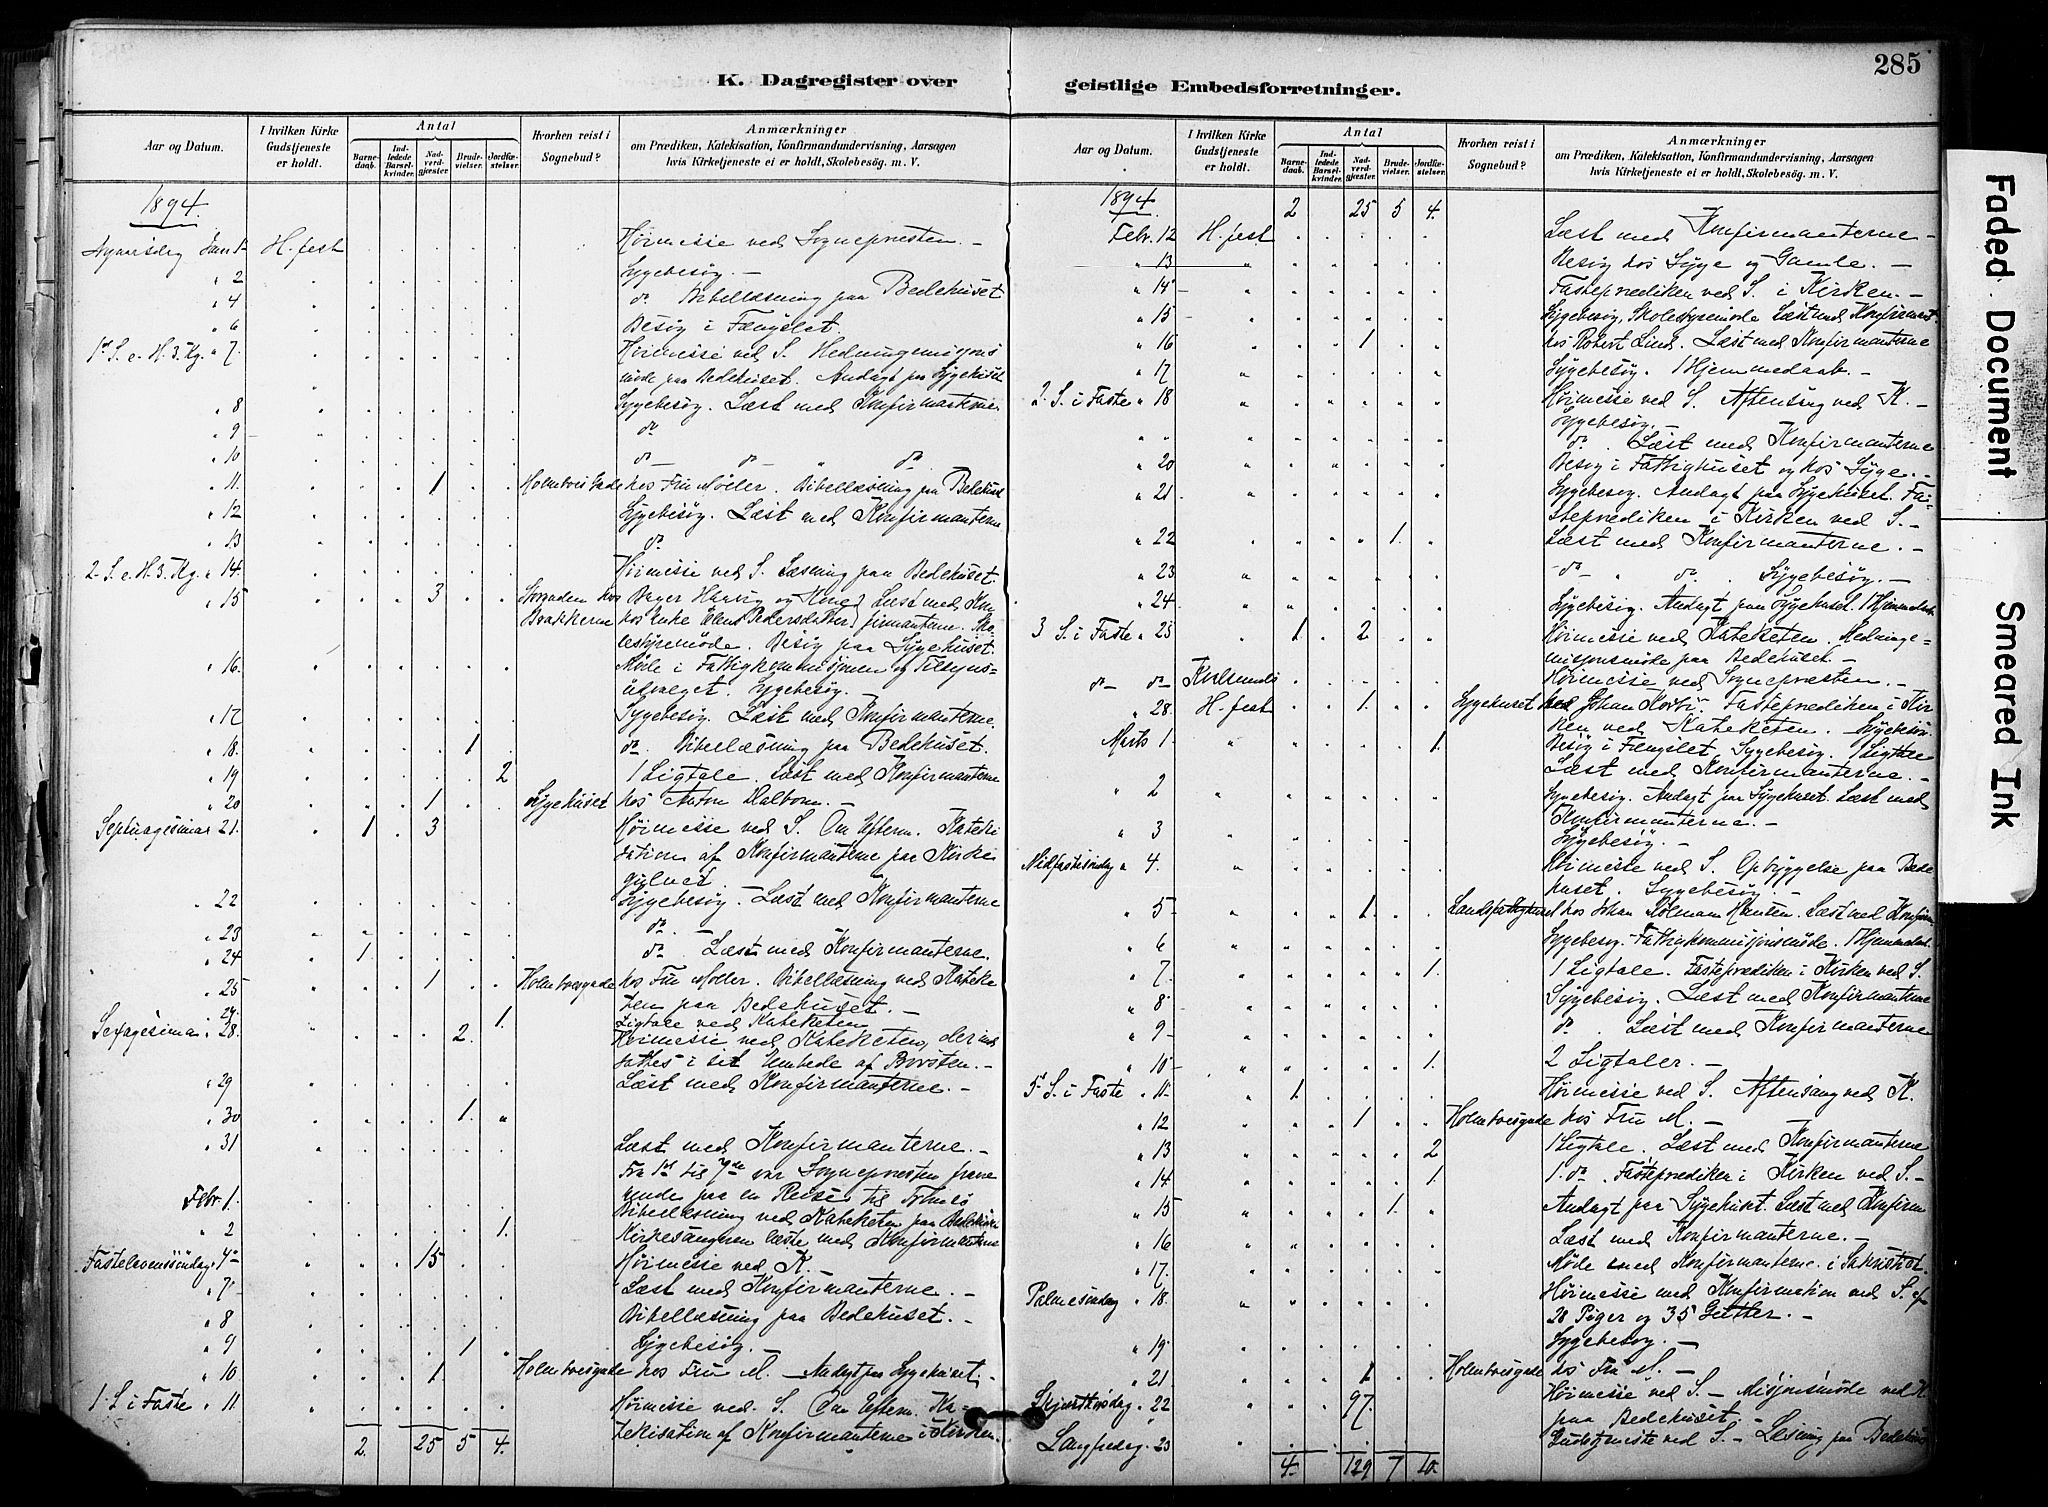 K. Dagregister over
geistlige Embedsforretninger.
285
Aar og Datum.
I hvilken Kirke Gudstjeneste er holdt.
Antal
Barnedaab.
Indledede Barselkvinder.
Nadverdgjæster.
Brudevielser.
Jordfæstelser.
Hvorhen reist i Sognebud?
Anmærkninger
om Prædiken, Katekisation, Konfirmandundervisning, Aarsagen
hvis Kirketjeneste ei er holdt, Skolebesøg. m. V.
1894.
Nyaarsdag Jan. 1 H.fest Høimesse ved Sognepresten. –
" 2 Sygebesøg. –
" 4 do Bibellæsning paa Bedehuset
" 6 Besøg i Fængslet.
1st S. e. H. 3. Kg. " 7. Høimesse ved S. Hedningemisjons
møde paa Bedehuset. Andagt paa Sygehuset
" 8 Sygebesøg. Læst med Konfirmanterne.
" 9 do
" 10 do – do – " do
" 11. 1 Holmboesgade hos Fru Møller. Bibellæsning paa Bedehuset
" 12 Sygebesøg. Læst med Konfirmanterne
" 13 do
2. S. e. H. 3. Kg. " 14. Høimesse ved S. Læsning paa Bedehuset.
" 15 3 Storgaden hos Bager Haarig og Kone Læst med Kon
Bakkerne hos Enke Elen Pedersdatter firmanterne. Sko-
lestyremøde. Besøg paa Sygehuset.
" 16. Møde i Fattigkommisjonen og Tilsyns-
udvalget. Sygebesøg. –
" 17 Sygebesøg. Læst med Konfirmanterne.
" 18. 1. do. Bibellæsning paa Bedehuset.
" 19 2 1 Ligtale. Læst med Konfirmanterne
" 20 1. Sygehuset hos Anton Dalbom. –
Septuagesima 21. 1. 3 Høimesse ved S. Om Efterm. Kateki
sation af Konfirmanterne paa Kirke
gulvet.
" 22 Sygebesøg. – Læst med Konfirmanterne
" 23 do. –
" 24 1. do Læst med Konfirmanterne.
" 25 1 Holmboesgade hos Fru Møller. Bibellæsning ved Kateke
ten paa Bedehuset. –
27. 1. Ligtale ved Kateketen
Sexagesima " 28. 2. Høimesse ved Kateketen, der ind
sattes i sit Embede af Provsten. –
" 29 Læst med Konfirmanterne. –
" 30 1. "
" 31 Læst med Konfirmanterne. –
Fra 1st til 7de var Sognepresten frave
rende paa en Reise til Tromsø
Febr. 1. Bibellæsning ved Kateketen paa Bedehuset
" 2 1. Kirkesangeren læste med Konfirmanterne
Fastelavenssøndag " 4 15 Høimesse ved K.
" 7 Læst med Konfirmanterne. –
" 8 Bibellæsning paa Bedehuset. –
" 9 1 Sygebesøg. –
" 10 1. Holmboesgade hos Fru M. – Andagt paa Sygehuset. –
1. S. i Faste " 11. Høimesse ved S. Om Efterm. Ka-
tekisation af Konfirmanterne i Kirken.
2. 25 5 4.
Aar og Datum.
I hvilken Kirke Gudstjeneste er holdt.
Antal
Barnedaab.
Indledede Barselkvinder.
Nadverdgjæster.
Brudevielser.
Jordfæstelser.
Hvorhen reist i Sognebud?
Anmærkninger
om Prædiken, Katekisation, Konfirmandundervisning, Aarsagen
hvis Kirketjeneste ei er holdt, Skolebesøg. m. V.
1894. 2 25 5 4.
Febr. 12 H.fest Læst med Konfirmanterne –
" 13 Besøg hos Syge og Gamle. –
" 14 Fasteprediken ved S. i Kirken. –
" 15 Sygebesøg, Skolestyremøde Læst med Konfirmant.
" 16 1. hos Robert Lind. Læst med Konfirmanterne
" 17 Sygebesøg. 1 Hjemmedaab. –
2. S. i Faste " 18 Høimesse ved S. Aftensang ved K. –
Sygebesøg. –
" " do. Læst med Konfirmanterne
" 20 Besøg i Fattighuset og hos Syge. –
" 21 Sygebesøg. Andagt paa Sygehuset. Fa-
steprediken i Kirken ved S. –
" 22 1. Læst med Konfirmanterne. –
" 23 – do – " do. Sygebesøg. –
" 24 Sygebesøg. Andagt paa Sygehuset. 1 Hjemmedaab
3 S. i Faste " 25 1. 2 Høimesse ved Kateketen. Hedninge-
misjonsmøde paa Bedehuset. –
do – do – Høimesse ved Sognepresten. –
" 28. H.fest 1. Sygehuset hos Johan Fasteprediken i Kir
ken ved Kateketen. Sygebesøg.
Marts 1. 1. Besøg i Fængslet. Sygebesøg. 1 Ligtale
Læst med Konfirmanterne. –
" 2 Sygebesøg. Andagt paa Sygehuset. Læst med
Konfirmanterne. –
" 3 Sygebesøg. –
Midfastesøndag " 4. Høimesse ved S. Opbyggelse paa Bede
huset. Sygebesøg. –
" 5 1. Landsfattighuset hos Johan Hansen. Læst med Konfirm
" 6 Sygebesøg. Fattigkommisjonsmøde. 1 Hjemmedaab.
" 7. 1. 1 Ligtale. Fasteprediken i Kirken ved S.
" 8 Sygebesøg. Læst med Konfirmanterne
" 9 do. Læst med Konfirmanterne
" 10 1. 2 Ligtaler. –
5 S. i Faste " 11 1. Høimesse ved S. Aftensang ved K.
" 12 1 Holmboesgade hos Fru M. –
" 13 2 1 Ligtale. Læst med Konfirmanterne
" 14 1. 1. do. Fasteprediken i Kirken ved S. –
" 15 1. Andagt paa Sygehuset. Læst med Konfirm
" 16 Læst med Konfirmanterne. –
" 17. Møde med Konfirmanterne i Sakristiet.
Palmesøndag " 18. Høimesse med Konfirmation ved S. af
28 Piger og 35 Gutter. –
" 19. Sygebesøg. –
" 21 1 Holmboesgade hos Fru M. –
Skjærthorsdag " 22 97. Høimesse ved S. – Misjonsmøde ved K.
paa Bedehuset. –
Langfredag " 23 Gudstjeneste ved S. – Læsning paa Bedehuset
4. 129 7 10.
Faded Document
Smeared Ink